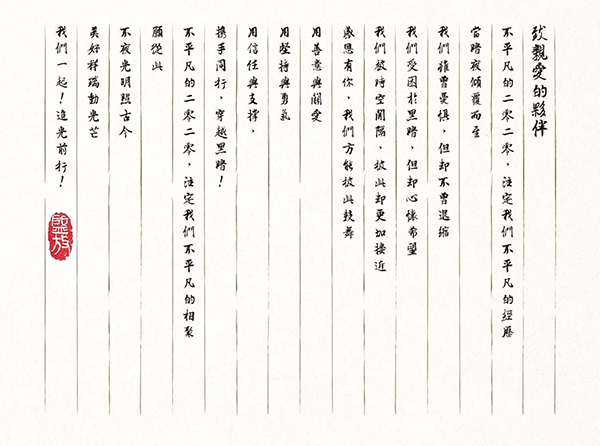 致親愛的夥伴
不平凡的二零二零，注定我們不平凡的經歷
當暗夜傾覆而至
我們雖曾憂懼，但却不曾退縮
我們受困於黑暗，但却心懷希望
我們被時空間隔，彼此却更加接近
感恩有你，我們方能彼此鼓舞
用善意與關愛
用堅持與勇氣
用信任與支撐，
攜手同行，穿越黑暗！
不平凡的二零二零，注定我們不平凡的相聚
願從此
不夜光明照古今
美好祥瑞動光芒
我們一起！追光前行！